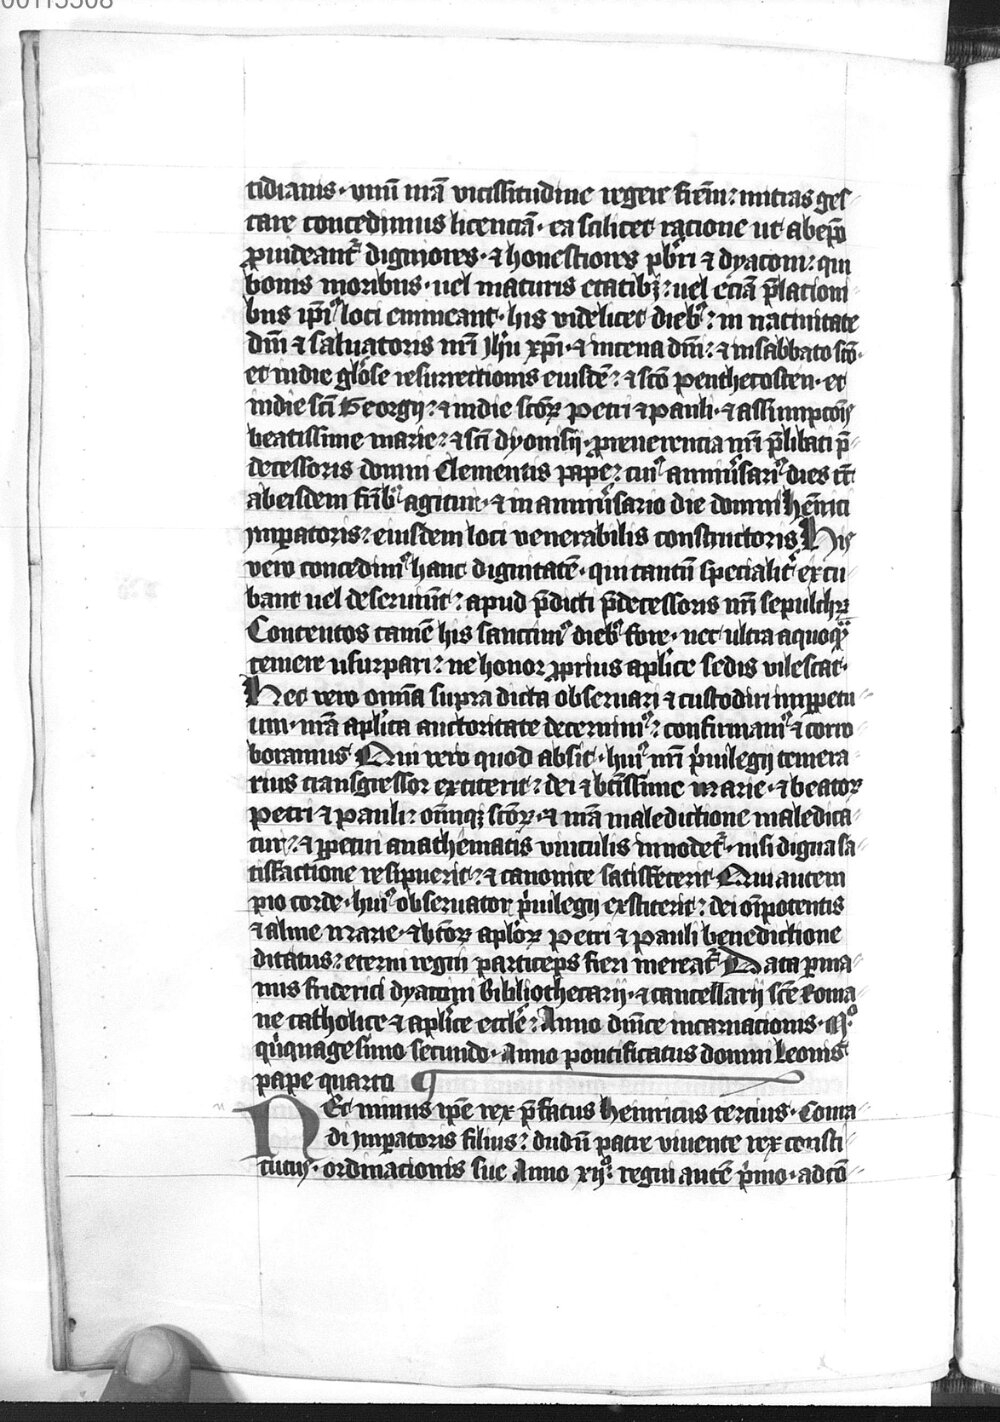 00115508
tidianis · vnu᷑ nr̄a vicissitudine regere firēm: mitras ges-
tare concedimus licenciā · ea scilicet racione ut ab ep̄o
ꝓuideant᷑ digniores · ⁊ honestiores pb̄ri ⁊ dyaconi: qui
bonis moribus · uel maturis etatibꝫ: uel eciā p̄lacioni
bus ip̄i᷒ loci emineant · his videlicet dieb᷒: in natiuitate
dn̄i ⁊ saluatoris nr̄i Jh̄u xp̄i · ⁊ in cena dn̄i: ⁊ in sabbato sc̄o ·
et in die gl̄ose resurrectionis eiusdē: ⁊ sc̄o penthecosten · et
in die sc̄i Georgij: ⁊ in die sc̄oꝝ petri ⁊ pauli · ⁊ assumpcōis
beatissime marie: ⁊ sc̄i dyonisij · ꝓ reuerencia nr̄i p̄libati p̄-
decessoris domni Clementis pape: cui᷒ anniu᷒sari᷒ dies
ab eisdem fr̄ib᷒ agitur · ⁊ in anniu᷒sario die domni hēnrici
jmꝑatoris: eiusdem loci venerabilis constructoris His
vero concedim᷒ hanc dignitatē · qui tantū specialit᷑ excu
bant uel deseruiūt: apud p̄dicti p̄decessoris nr̄i sepulchꝝ
Contentos tamē his sanccim᷒ dieb᷒ fore · nec ultra a quoq̄
temere usurpari: ne honor ꝓprius ap̄lice sedis vilescat ·
Hec vero om̄ia supra dicta obseruari ⁊ custodiri inꝑpetu-
um · nr̄a ap̄lica auctoritate decernim᷒: confirmam᷒ ⁊ corro
boramus Qui vero quod absit · hui᷒ nr̄i p̄uilegij temera-
rius transgressor extiterit: dei ⁊ bt̄issime marie · ⁊ beatoꝝ
petri ⁊ pauli: om̄iūqꝫ sc̄oꝝ · ⁊ nr̄a maledictione maledica-
tur: ⁊ ꝑpetui anathematis vinculis innodet᷑ · nisi digna sa-
tisfactione resipuerit: ⁊ canonice satisfecerit Qui autem
pio corde · hui᷒ obseruator p̄uilegij exstiterit: dei om̄ipotentis
⁊ alme marie · ⁊ bt̄oꝝ ap̄loꝝ petri ⁊ pauli benedictione
ditatus: eterni regni particeps fieri mereat᷑ Data ꝑ ma-
nus friderici dyaconi Bibliothecarij · ⁊ cancellarij sc̄e Roma-
ne catholice ⁊ ap̄lice eccl̄e: Anno dn̄ice incarnacionis · Mº
qͥnquagesimo secundo · Anno pontificatus domni Leonis
pape quarto
NEc minus ip̄e rex p̄fatus heinricus tercius · Conra-
di jmꝑatoris filius: dudū patre viuente rex consti
tutus · ordinacionis sue Anno xijº: regni autē p̄mo · ad cō-